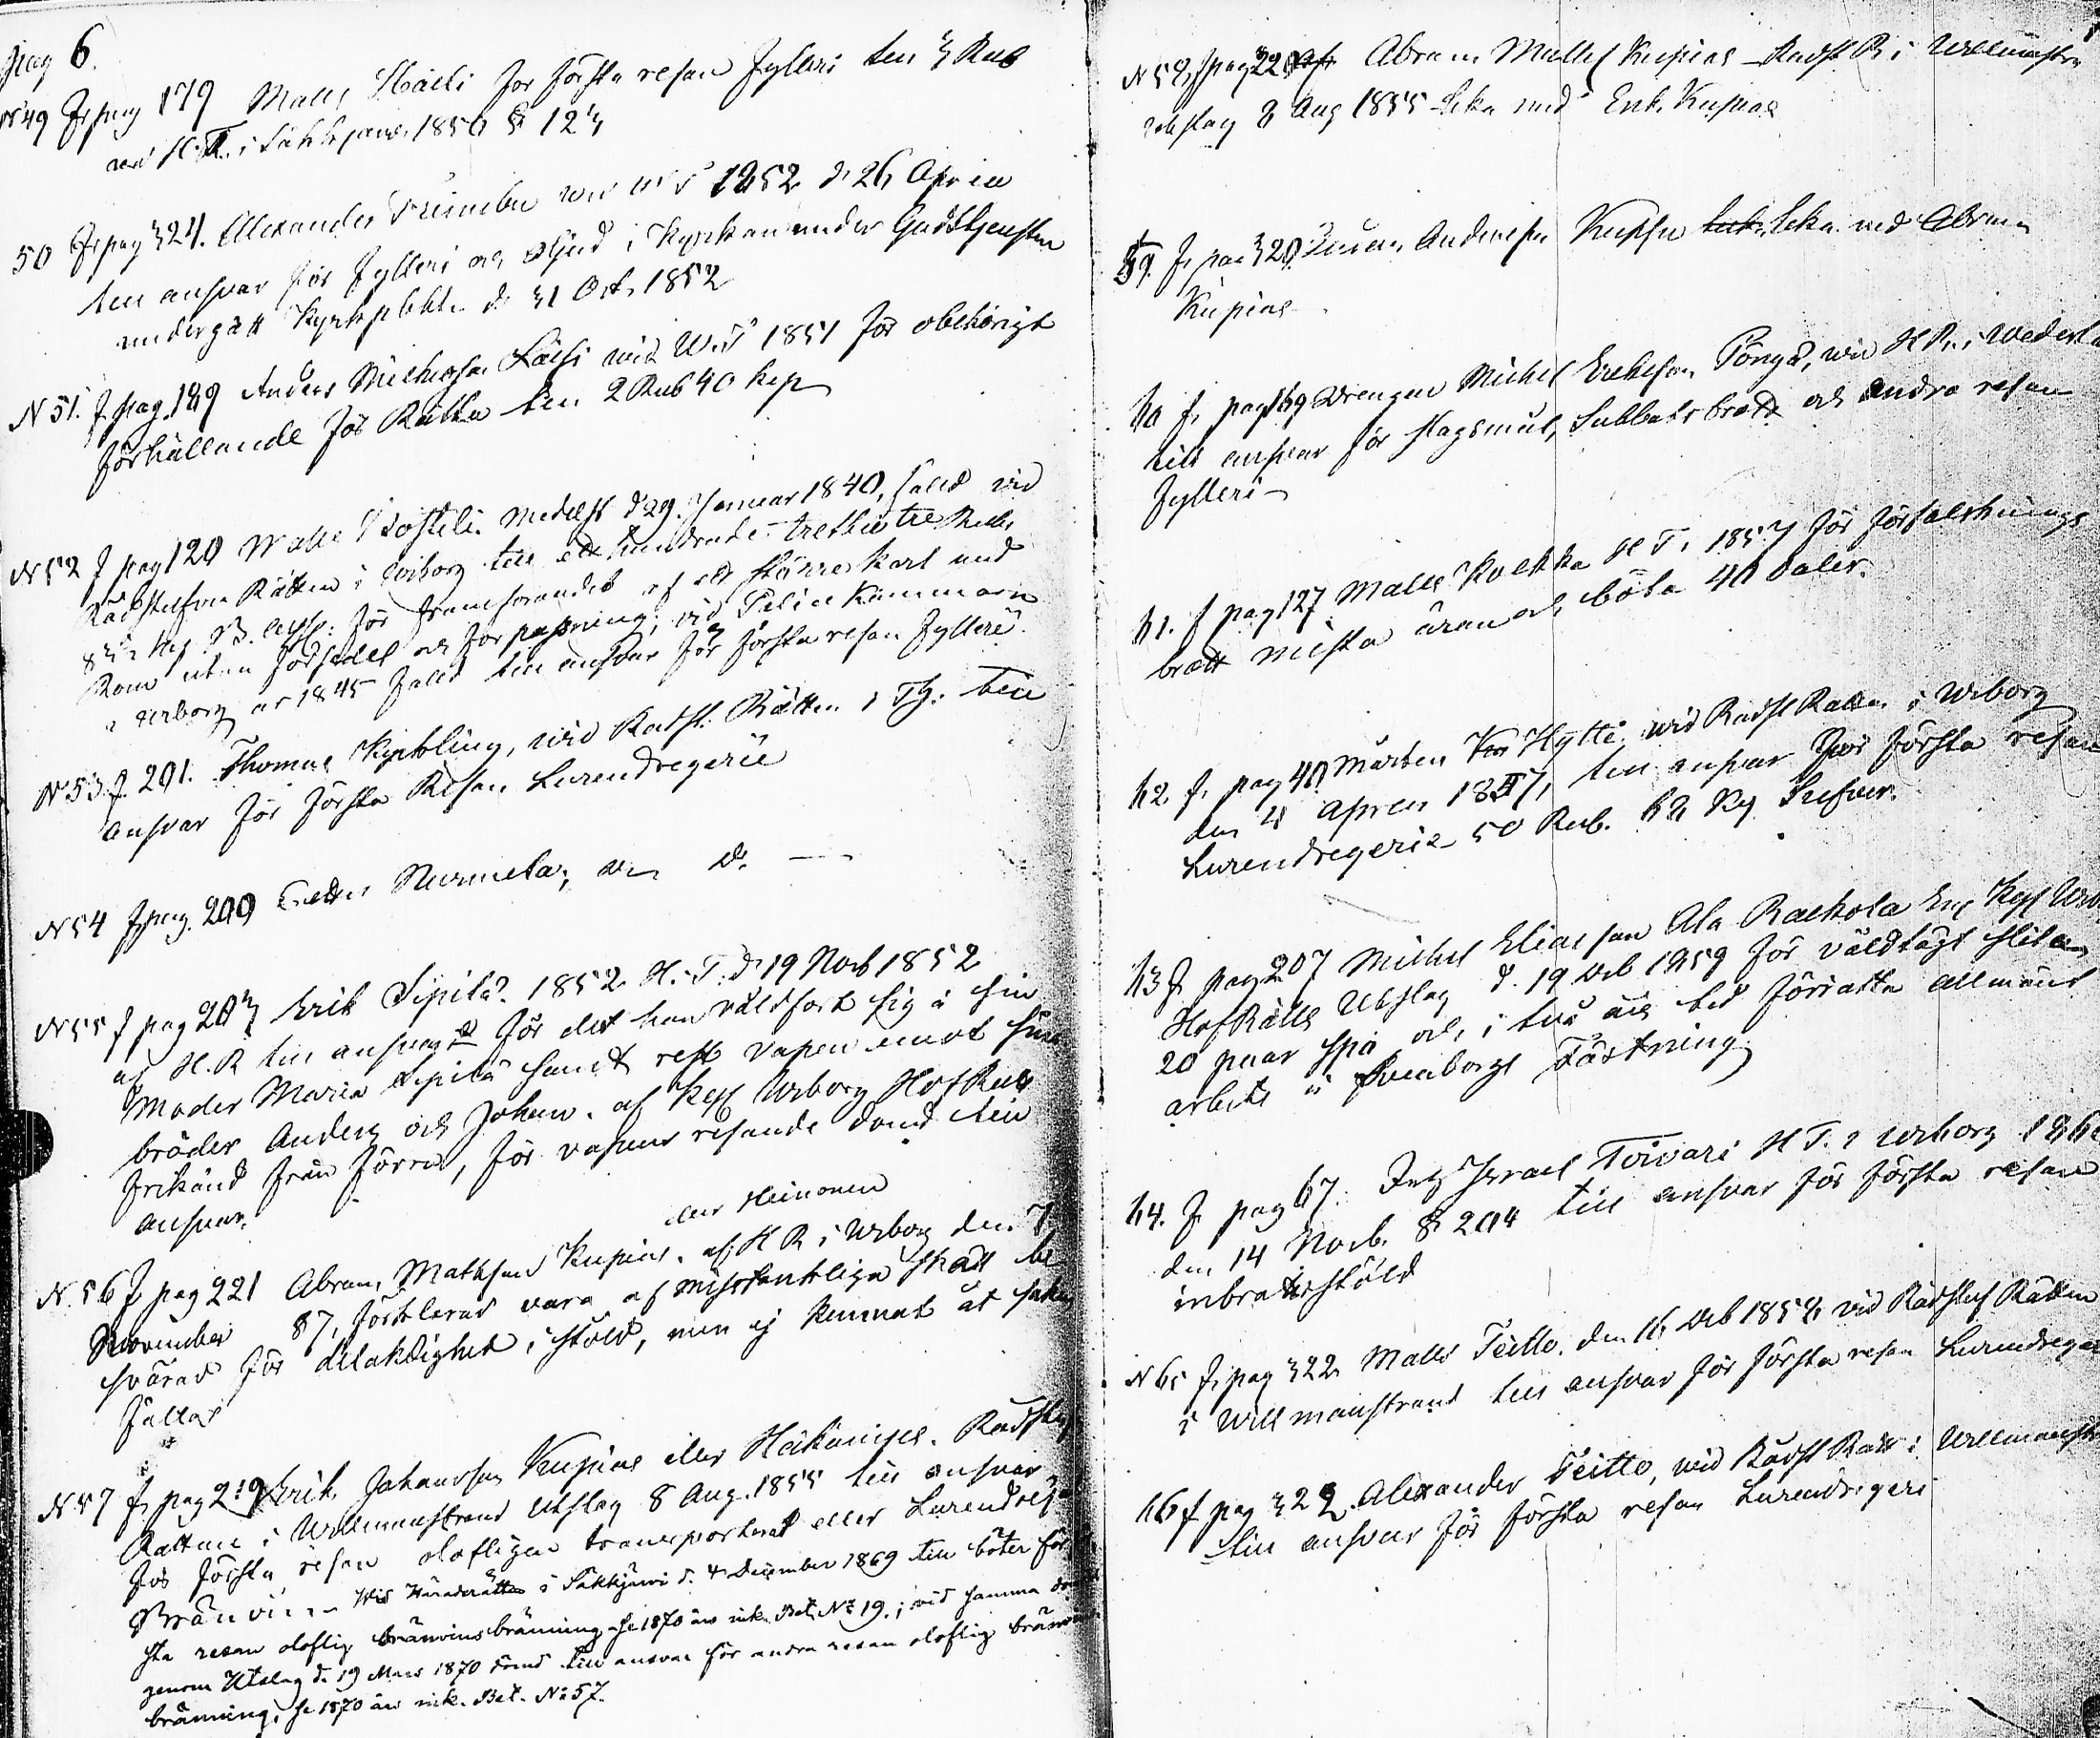 pag 6.
N 49 Jf pag 179 Matts Skaeli for första resan fylleri till 3 Rub
vid H.T. i Säkkjärvi 1856 § 123
50 Jf pag 324. Alexander vid W T 1852 d. 26 April
till ansvar för fylleri och oljud i Kyrkan under Gudstjensten
undergått Kyrkoplikt d. 31 Oct. 1852
N 51. J. pag. 189 Anders Michelsson Laesi vid W.T 1851 för obehörigt
förhållande för Rätta till 2 Rub 40 kop
N 52 J pag 120 Matts Postila. medelst d 29. Januar 1840, fäld vid
Rådstufvu Rätten i Wiborg till ett hundrade trettio tre Rub.
85 5/7 kop B. Ass: för framforandet af ett större kart med
Rom utan förpassning; vid Polise Kammarn
i Wiborg år 1845 fäld till ansvar för första resan fylleri.
N 53 J. 201. Thomas Kyckling, vid Radst. Rätten i Fh: till
ansvar för första Resan Lurendregerie
N 54 J pag. 200 Petter Nurmela, d.
N 55 J pag 203 Erik Sipilä. 1852 H.T. d 19 Novb 1852
af H.R till ansvar för det han våldfört sig å sin
Moder Maria Sipilä samt rest vapen emot sina
bröder Anders och Johan. af Kejs Wiborg HofRätt
frikänd från förra, för vapens resande dömd till
ansvar.
eller Heinonen
N. 56 J pag 221 Abram Mathsson Kupias. af H R i Wiborg den 7
November § 7, förklarad vara af misstänkliga skäl be
svärad för delaktighet i stöld, men ej kunnat åt saken
fällas
N 57 J. pag 219 Erik Johansson Kupias eller Häkämies. Radstuf
Rättens i Willmanstrand utslag 8 Aug. 1855 till ansvar
för första resan olofligen transporterat eller Lurendrejat
Bränvin. - Wid Häradsrätten i Säkkjärvi d. 4 December 1869 till böter för
sta resan oloflig bränvinsbränning se 1870 års ink. Bet. No 19.; vid samma domst
genom Utslag d. 19 Mars 1870 dömd till ansvar för andra resan oloflig bränvins
bränning, se 1870 års ink. Bet. No 57.
N 58, J pag 220 Abram Mattss Kupias Radst R i Willmanstra
utslag 8 Aug 1855 lika med Erik Kupias
59. J. pag 320. Johan Andersson Kupias lika med Abram
Kupias
60 J. pag 169 Drengen Michel Erikson Pöngä, vid H R. i Wederla
till ansvar för slagsmål, Sabbatsbrott och andra resan
fylleri -
61. J pag 127 Matts Kolkka H T. 1857 för förfalsknings
brott mista äran och böta 40 daler.
62. J. pag 40 Mårten Hytti vid Radst Rätten i Wiborg
den 4 April 1857, till ansvar för första resan
Lurendregerie 50 Rub. 62 Kop Silfver.
63 J pag 207 Michel Eliasson Ala Raekola Enl Kejs Wib.
HofRätts Utslag d. 19 Feb 1859 för våldtägt slita
20 paar spö och i två års tid förrätta allmänt
arbete å Sveaborgs Fästning
64. J pag 67. Israel Toivari H T. i Wiborg 186
den 14 Novb. § 204 till ansvar för första resan
inbrottsstöld
N 65 J. pag 322 Matts Teitto. den 16 Feb 1858 vid Rådstuf Rätten
i Willmanstrand till ansvar för första resan Lurendreger
66 J pag 322. Alexander Teitto, vid Rådst Rätt i Willmanstr
till ansvar för första resan Lurendregeri